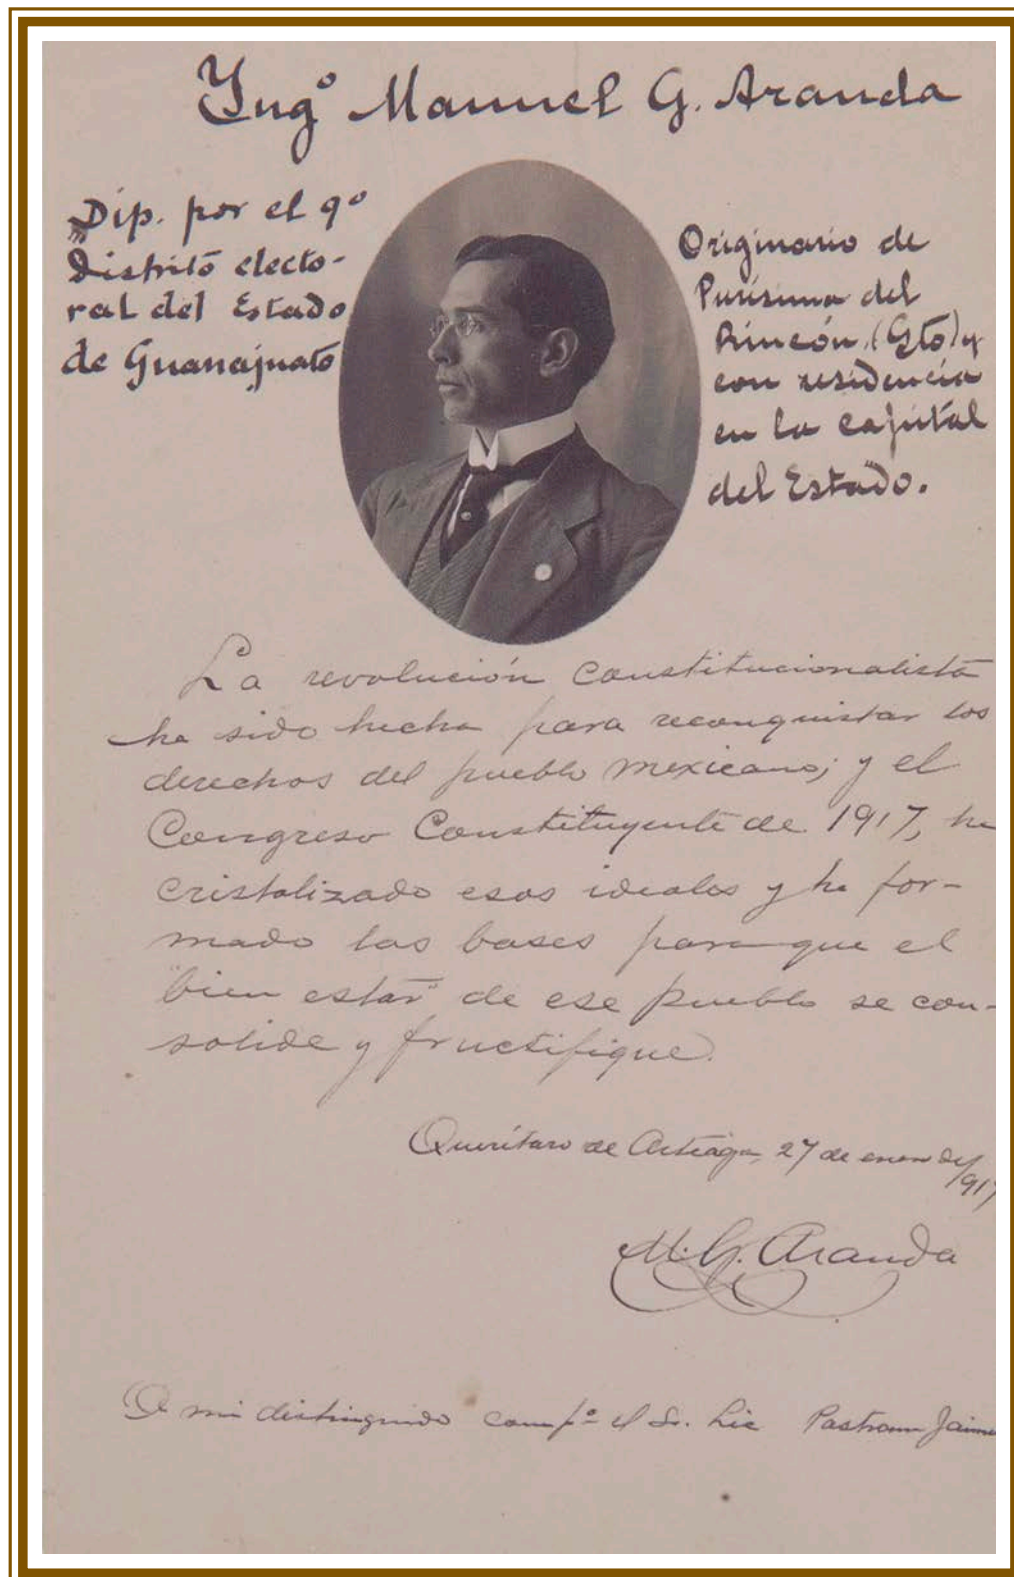 Yng° Manuel G. Aranda
Dip. por el 9°
Distrito electo-
ral del Estado
de Guanajuato
Originario de
Purísima del
Rincón, (Gto) y
con residencia
en la capital
del Estado.
La revolución constitucionalista
ha sido hecha para reconquistar los
derechos del pueblo mexicano; y el
Congreso Constituyente de 1917, ha
cristalizado esos ideales y ha for-
mado las bases para que el
"bien estar" de ese pueblo se con-
solide y fructifique.
Querétaro de Arteaga, 27 de enero de
1917
M. G. Aranda
A mi distinguido comp° el Sr. Lic Pastrana Jaimes